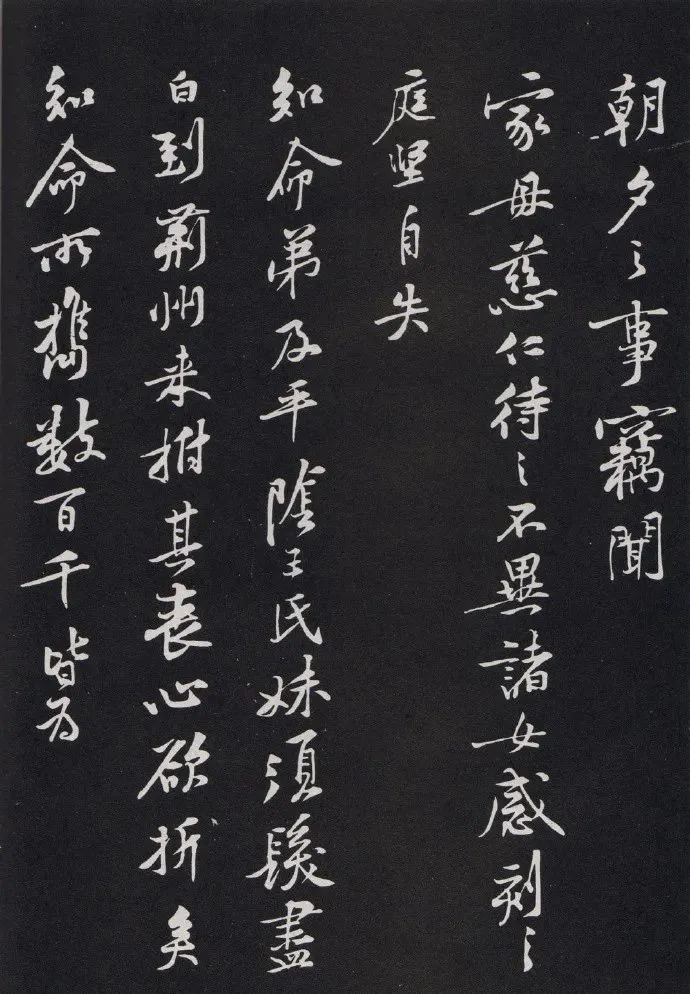 朝夕之事竊聞
家母慈仁待之不異諸女感刻之
庭堅自失
知命弟及平陰王氏妹須鬢盡
白到荊州來拊其喪心欲折矣
知命所攜數百千皆為